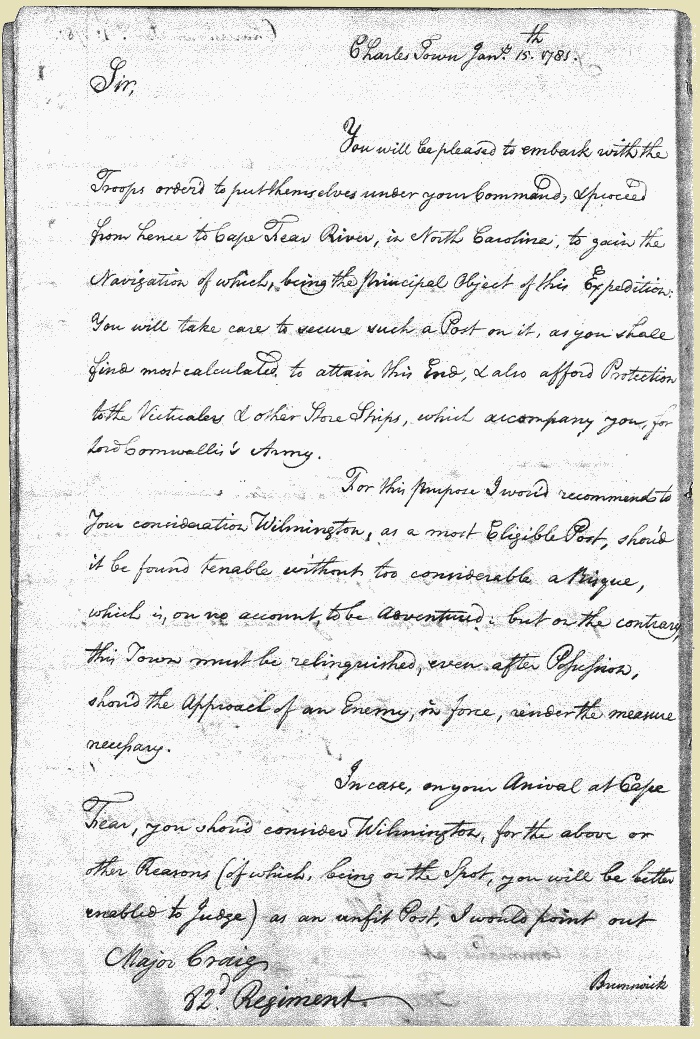 Charles Town Jany. 15th. 1781.
Sir,
You will be pleased to embark with the
Troops order'd to put themselves under your Command, & proceed
from hence to Cape Fear River, in North Carolina, to gain the
Navigation of which, being the Principal Object of this Expedition:
You will take care to secure such a Post on it, as you shall
find most calculated, to attain this End, & also afford Protection
to the Victualers & other Store Ships, which accompany you, for
Lord Cornwallis's Army.
For this purpose I wou'd recommend to
Your consideration Wilmington, as a most Eligible Post, shou'd
it be found tenable without too considerable a Risque,
which is, on no account, to be adventured: but on the contrary,
this Town must be relinquished, even after Possession,
shou'd the Approach of an Enemy, in force, render the measure
necessary.
In case, on your Arrival at Cape
Fear, you shou'd consider Wilmington, for the above or
other Reasons (of which, being on the Spot, you will be better
enabled to Judge) as an unfit Post, I would point out
Major Craig
82d. Regiment
Brunswick